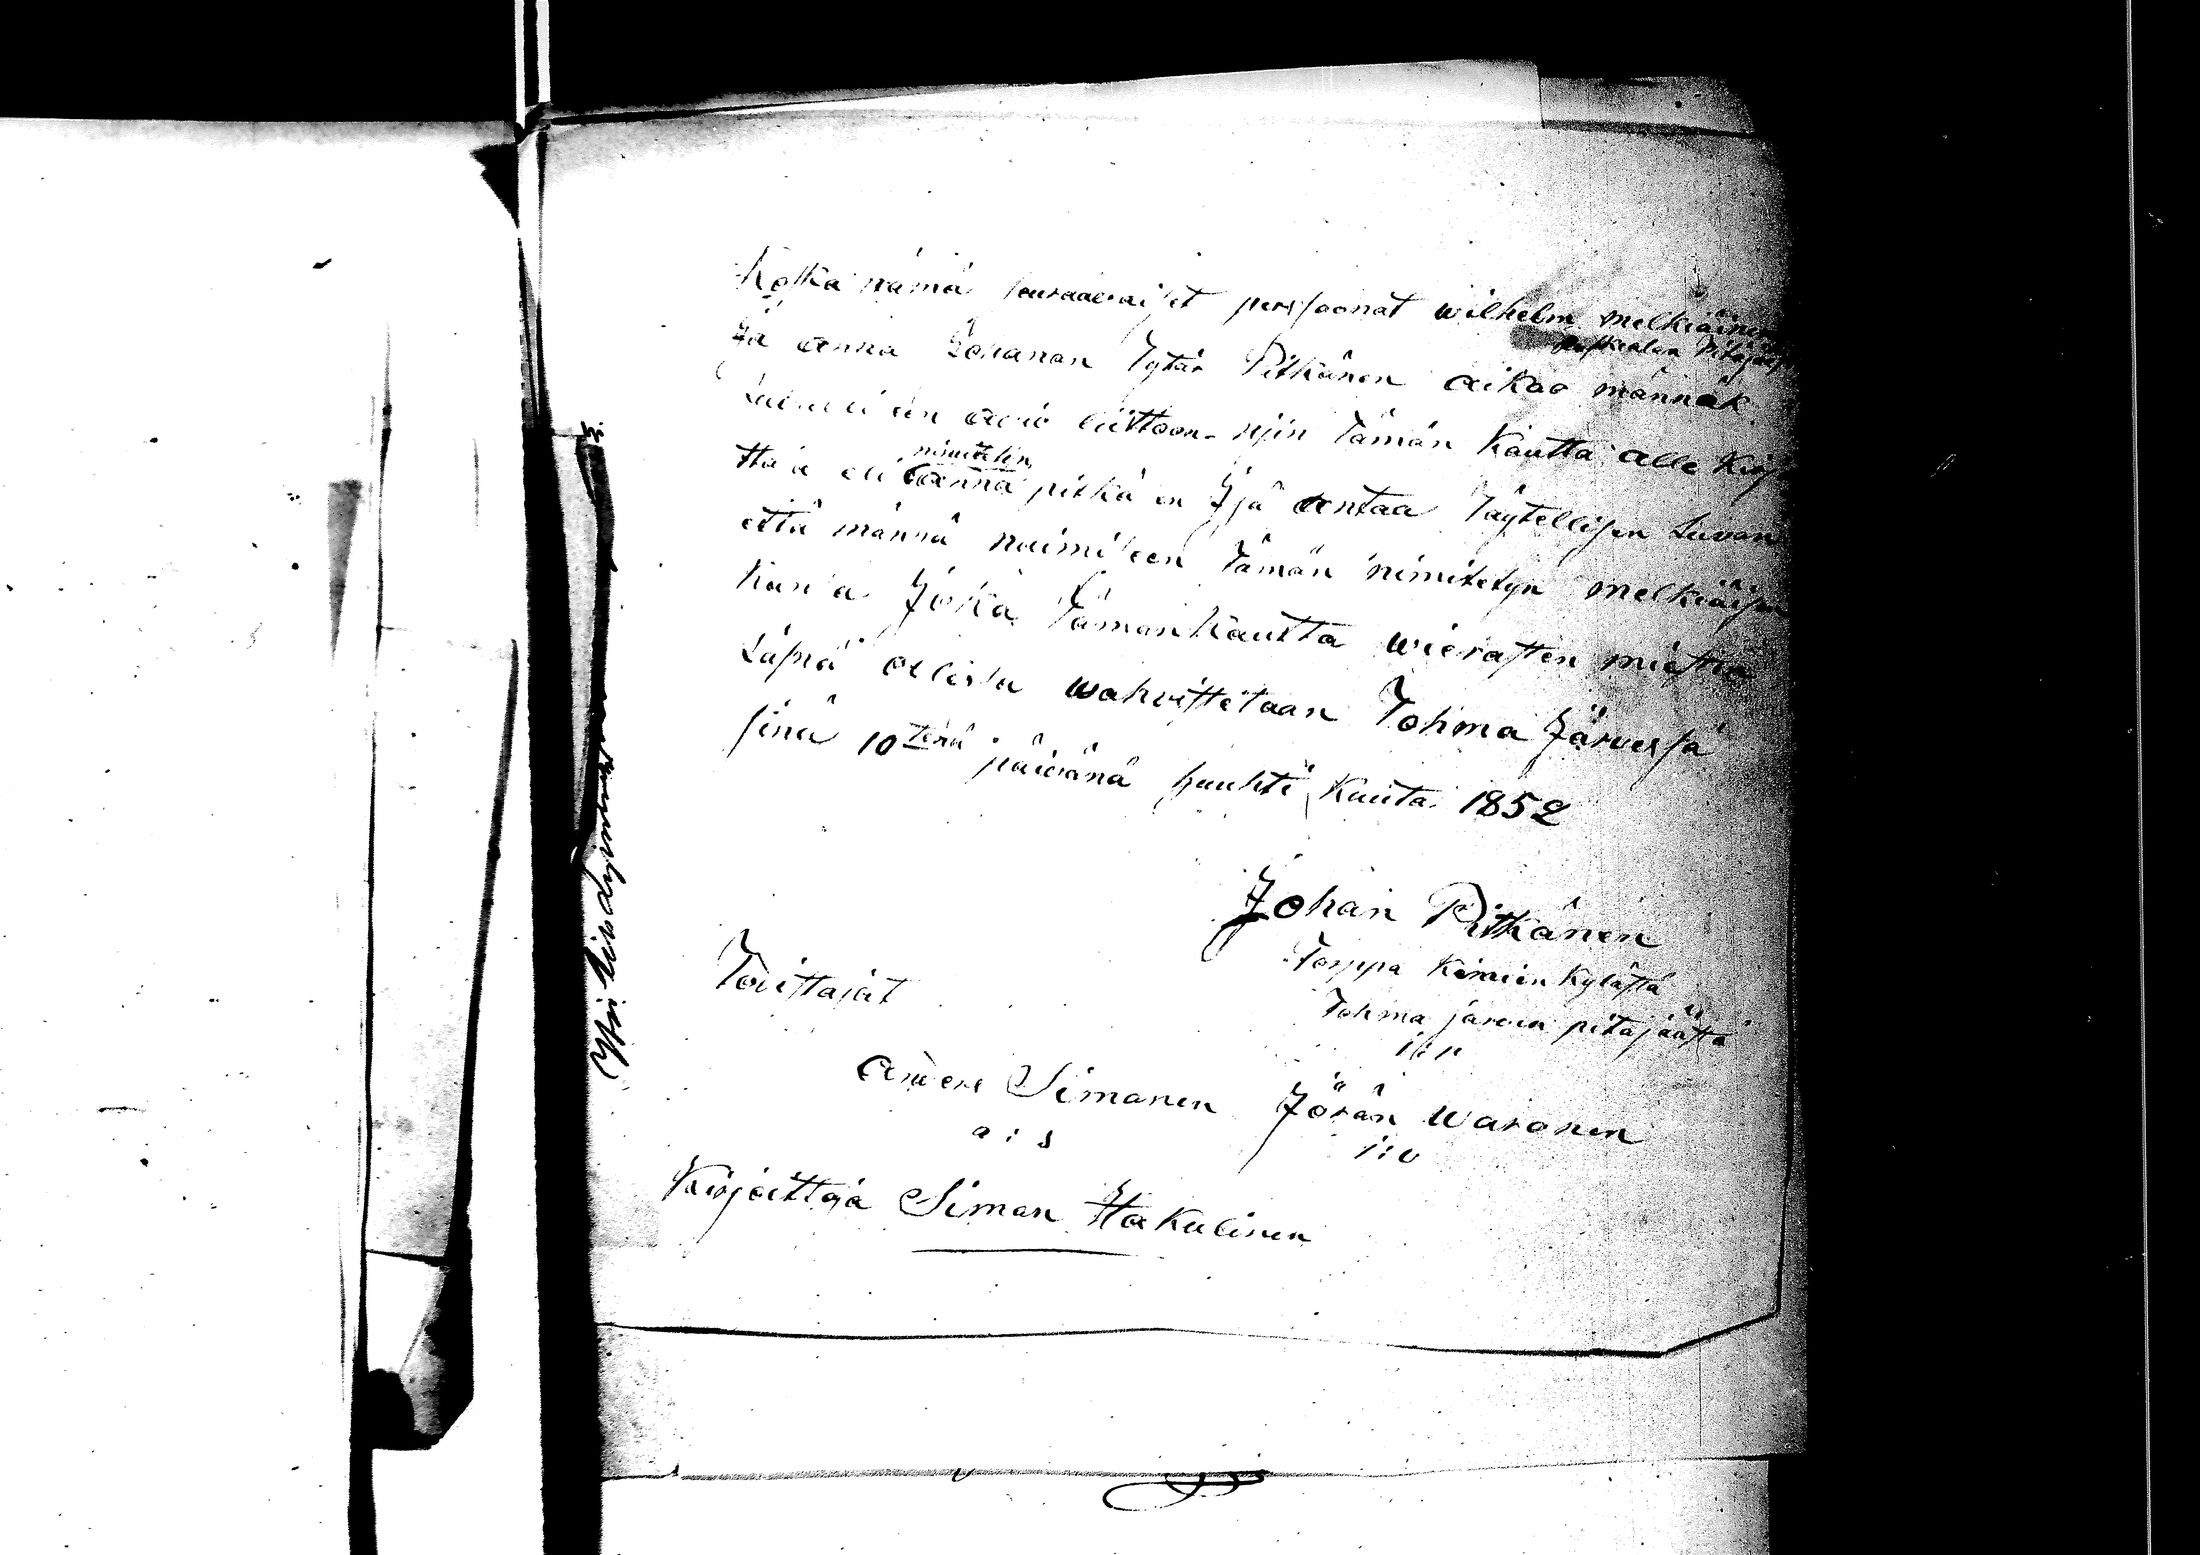 Koska nämä seuraavaiset perssoonat wilhelm melkiäinen
Ruskealan Pitäjäst
Ja anna Johanan Tytär Pitkänen aikoo männäk
avio liittoon niin Tämän Kautta alle Kirj
nimitetin
ttaja eli anna pitkä en Isä antaa Täytellisen Luvan
että männä naimiseen Tämän nimitetyn melkiäisen
Kansa Joka Tämänkautta wierasten miesten
Läsnä ollesa wahvistetaan Tohma Järvessä
sinä 10tenä päivänä huhti Kuuta 1852
Johan Pitkänen
Torppa Kemien Kylästä
Tohma järven pitäjäästä
Toistajat
Anders Simanen Jörän Waronen
a : s
Kirjoittaja Simon Hakulinen